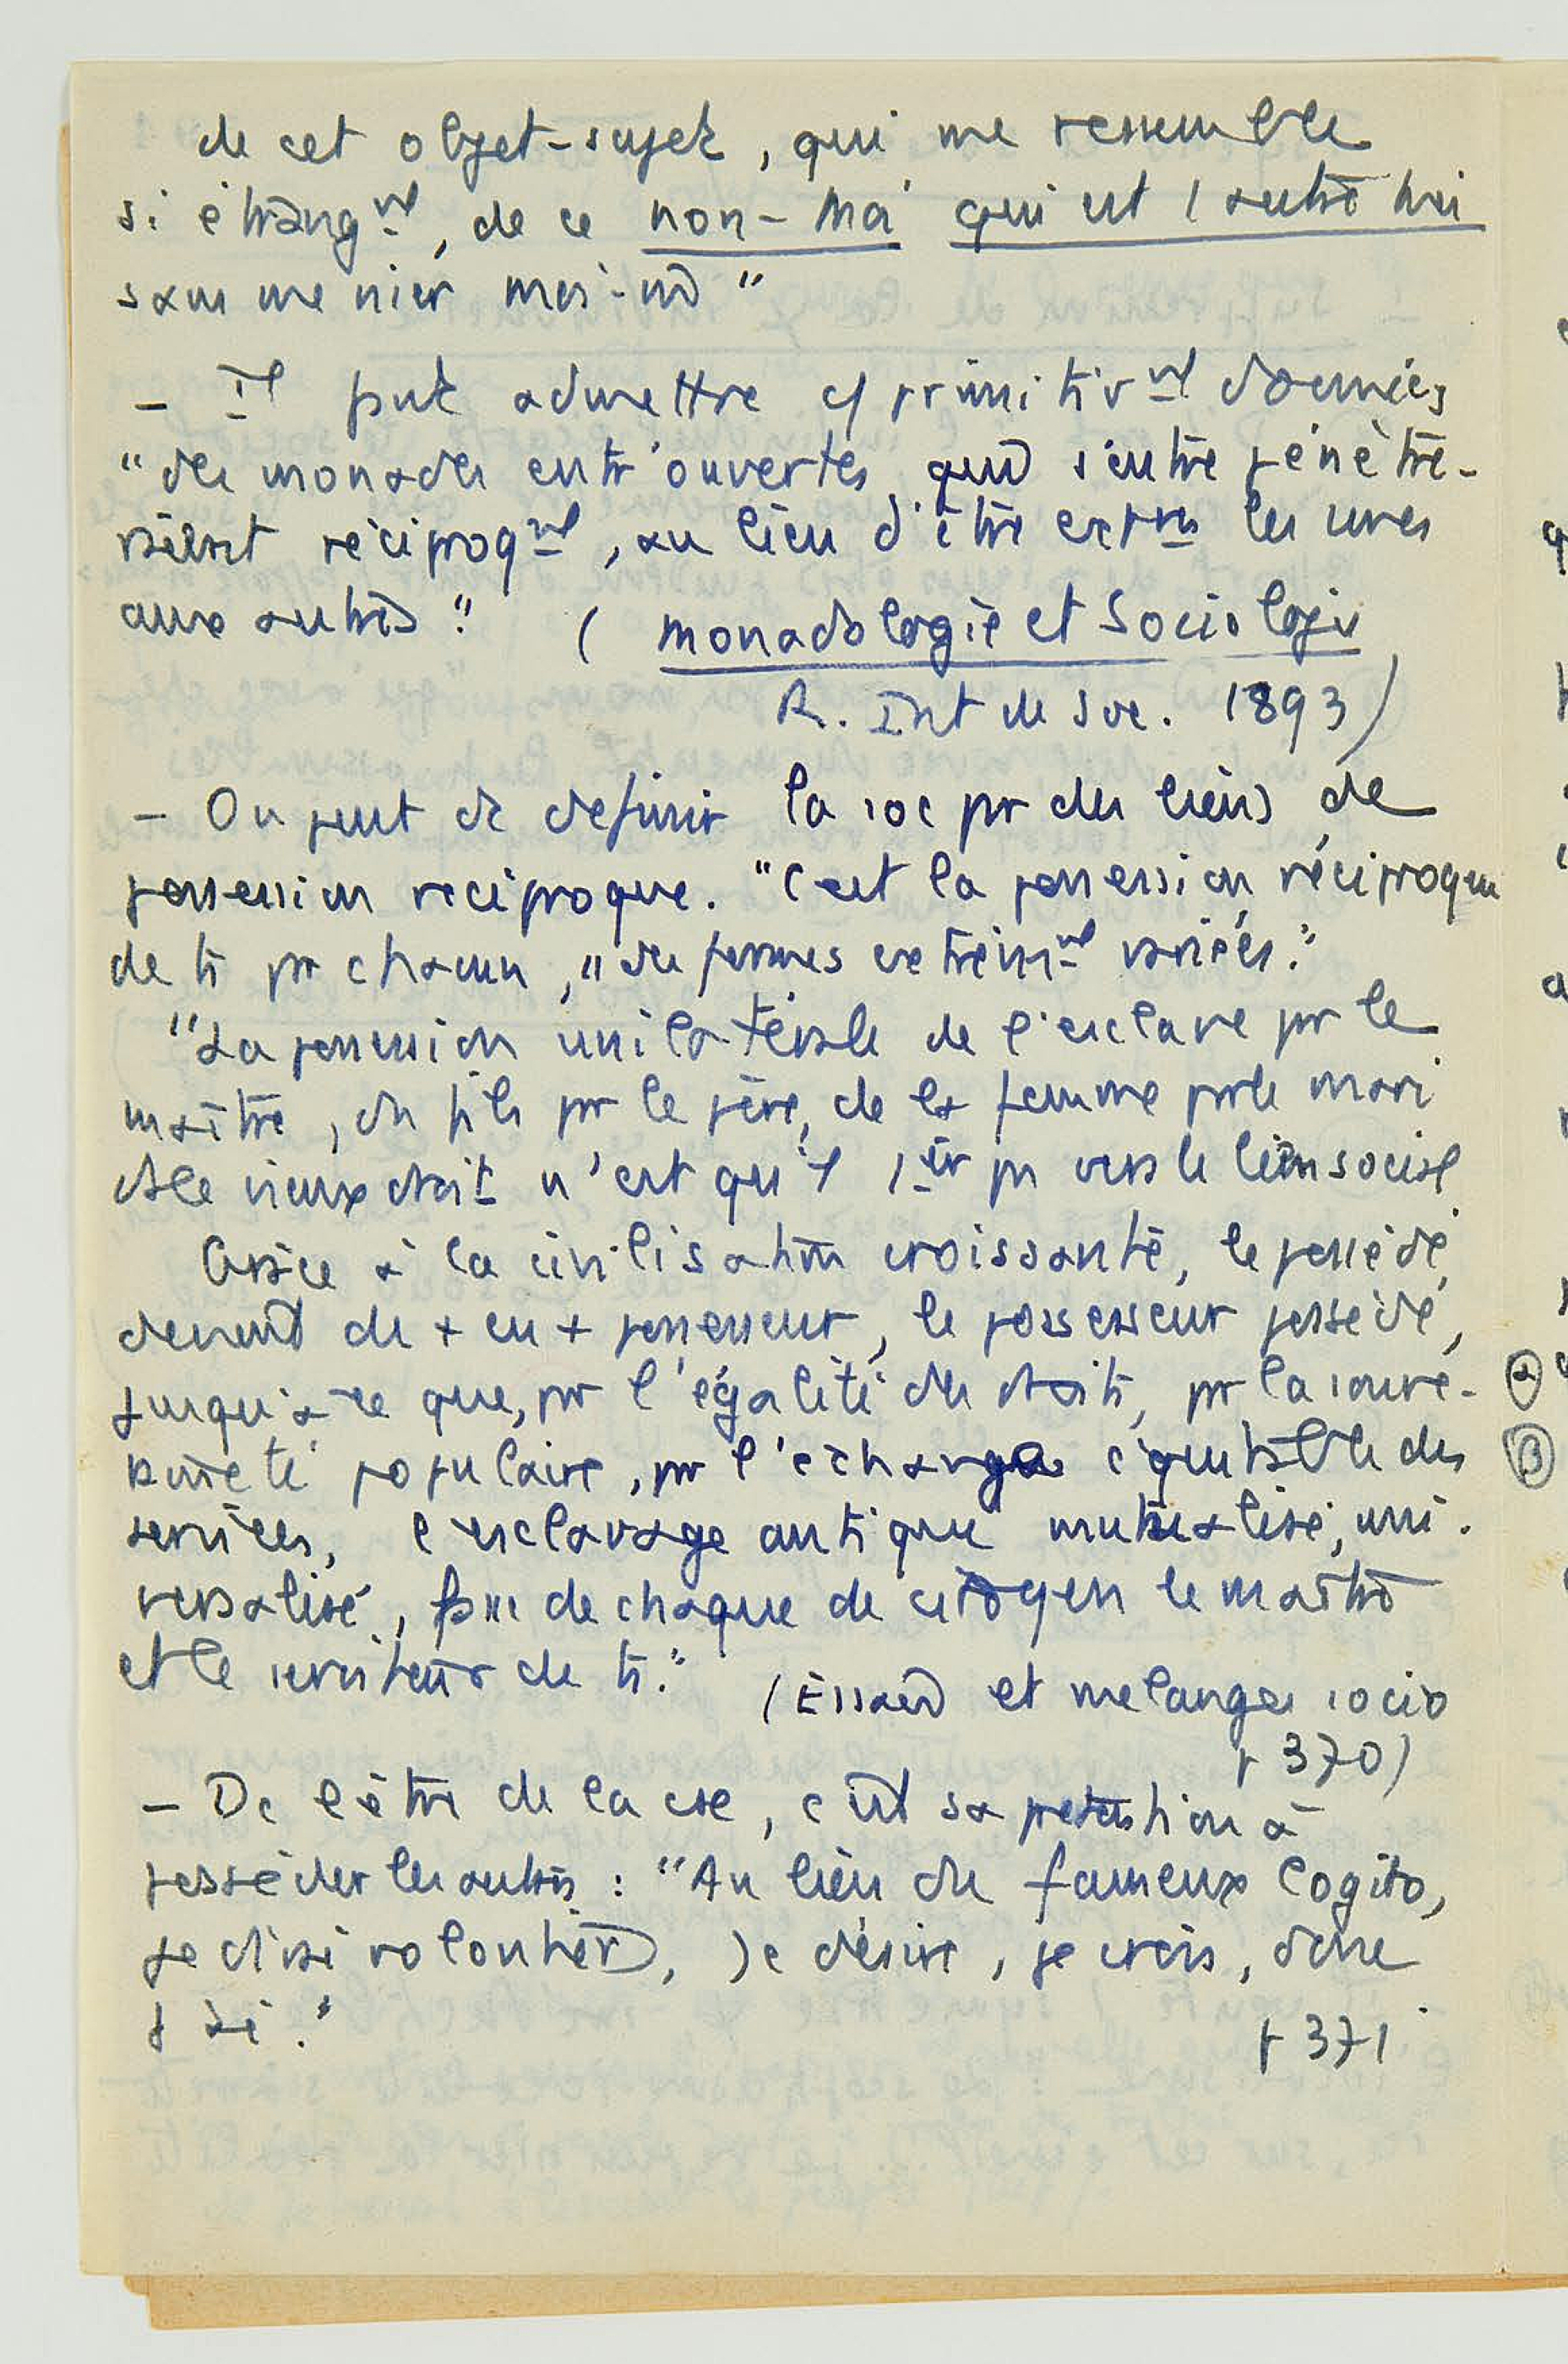 de cet objet-sujet, qui me ressemble
si étrangmt, de ce non-moi qui est 1 autre moi
sans me nier moi-m̂"
- Il faut admettre c/ primitivmt données
"des monades entr'ouvertes qui s'entre pénètre-
raient réciproqmt, au lieu d'être extres les unes
aux autres." (Monadologie et Sociologie
R. Int de Soc. 1893)
- On peut dc définir la soc pr des liens de
possession réciproque. "C'est la possession réciproque
de ts pr chacun," "des formes extrêmmt variées."
"La possession unilatérale de l'esclave pr le
maître, du fils pr le père, de la femme pr le mari
ds le vieux droit n'est qu'1 1er pas vers le lien social
Grâce à la civilisation croissante, le possédé
devient de + en + possesseur, le possesseur possédé,
jusqu'à ce que, pr l'égalité des droits, pr la souve-
raineté populaire, pr l'échange équitable des
services, l'esclavage antique mutualisé, uni-
versalisé, fasse de chaque de citoyen le maître
et le serviteur de ts." (Essais et mélanges socio
p 370)
- De l'être de la cse, c'est sa prétention à
posséder les autres : "Au lieu du fameux Cogito,
je dirai volontiers, Je désire, je crois, donc
j'ai." p 371